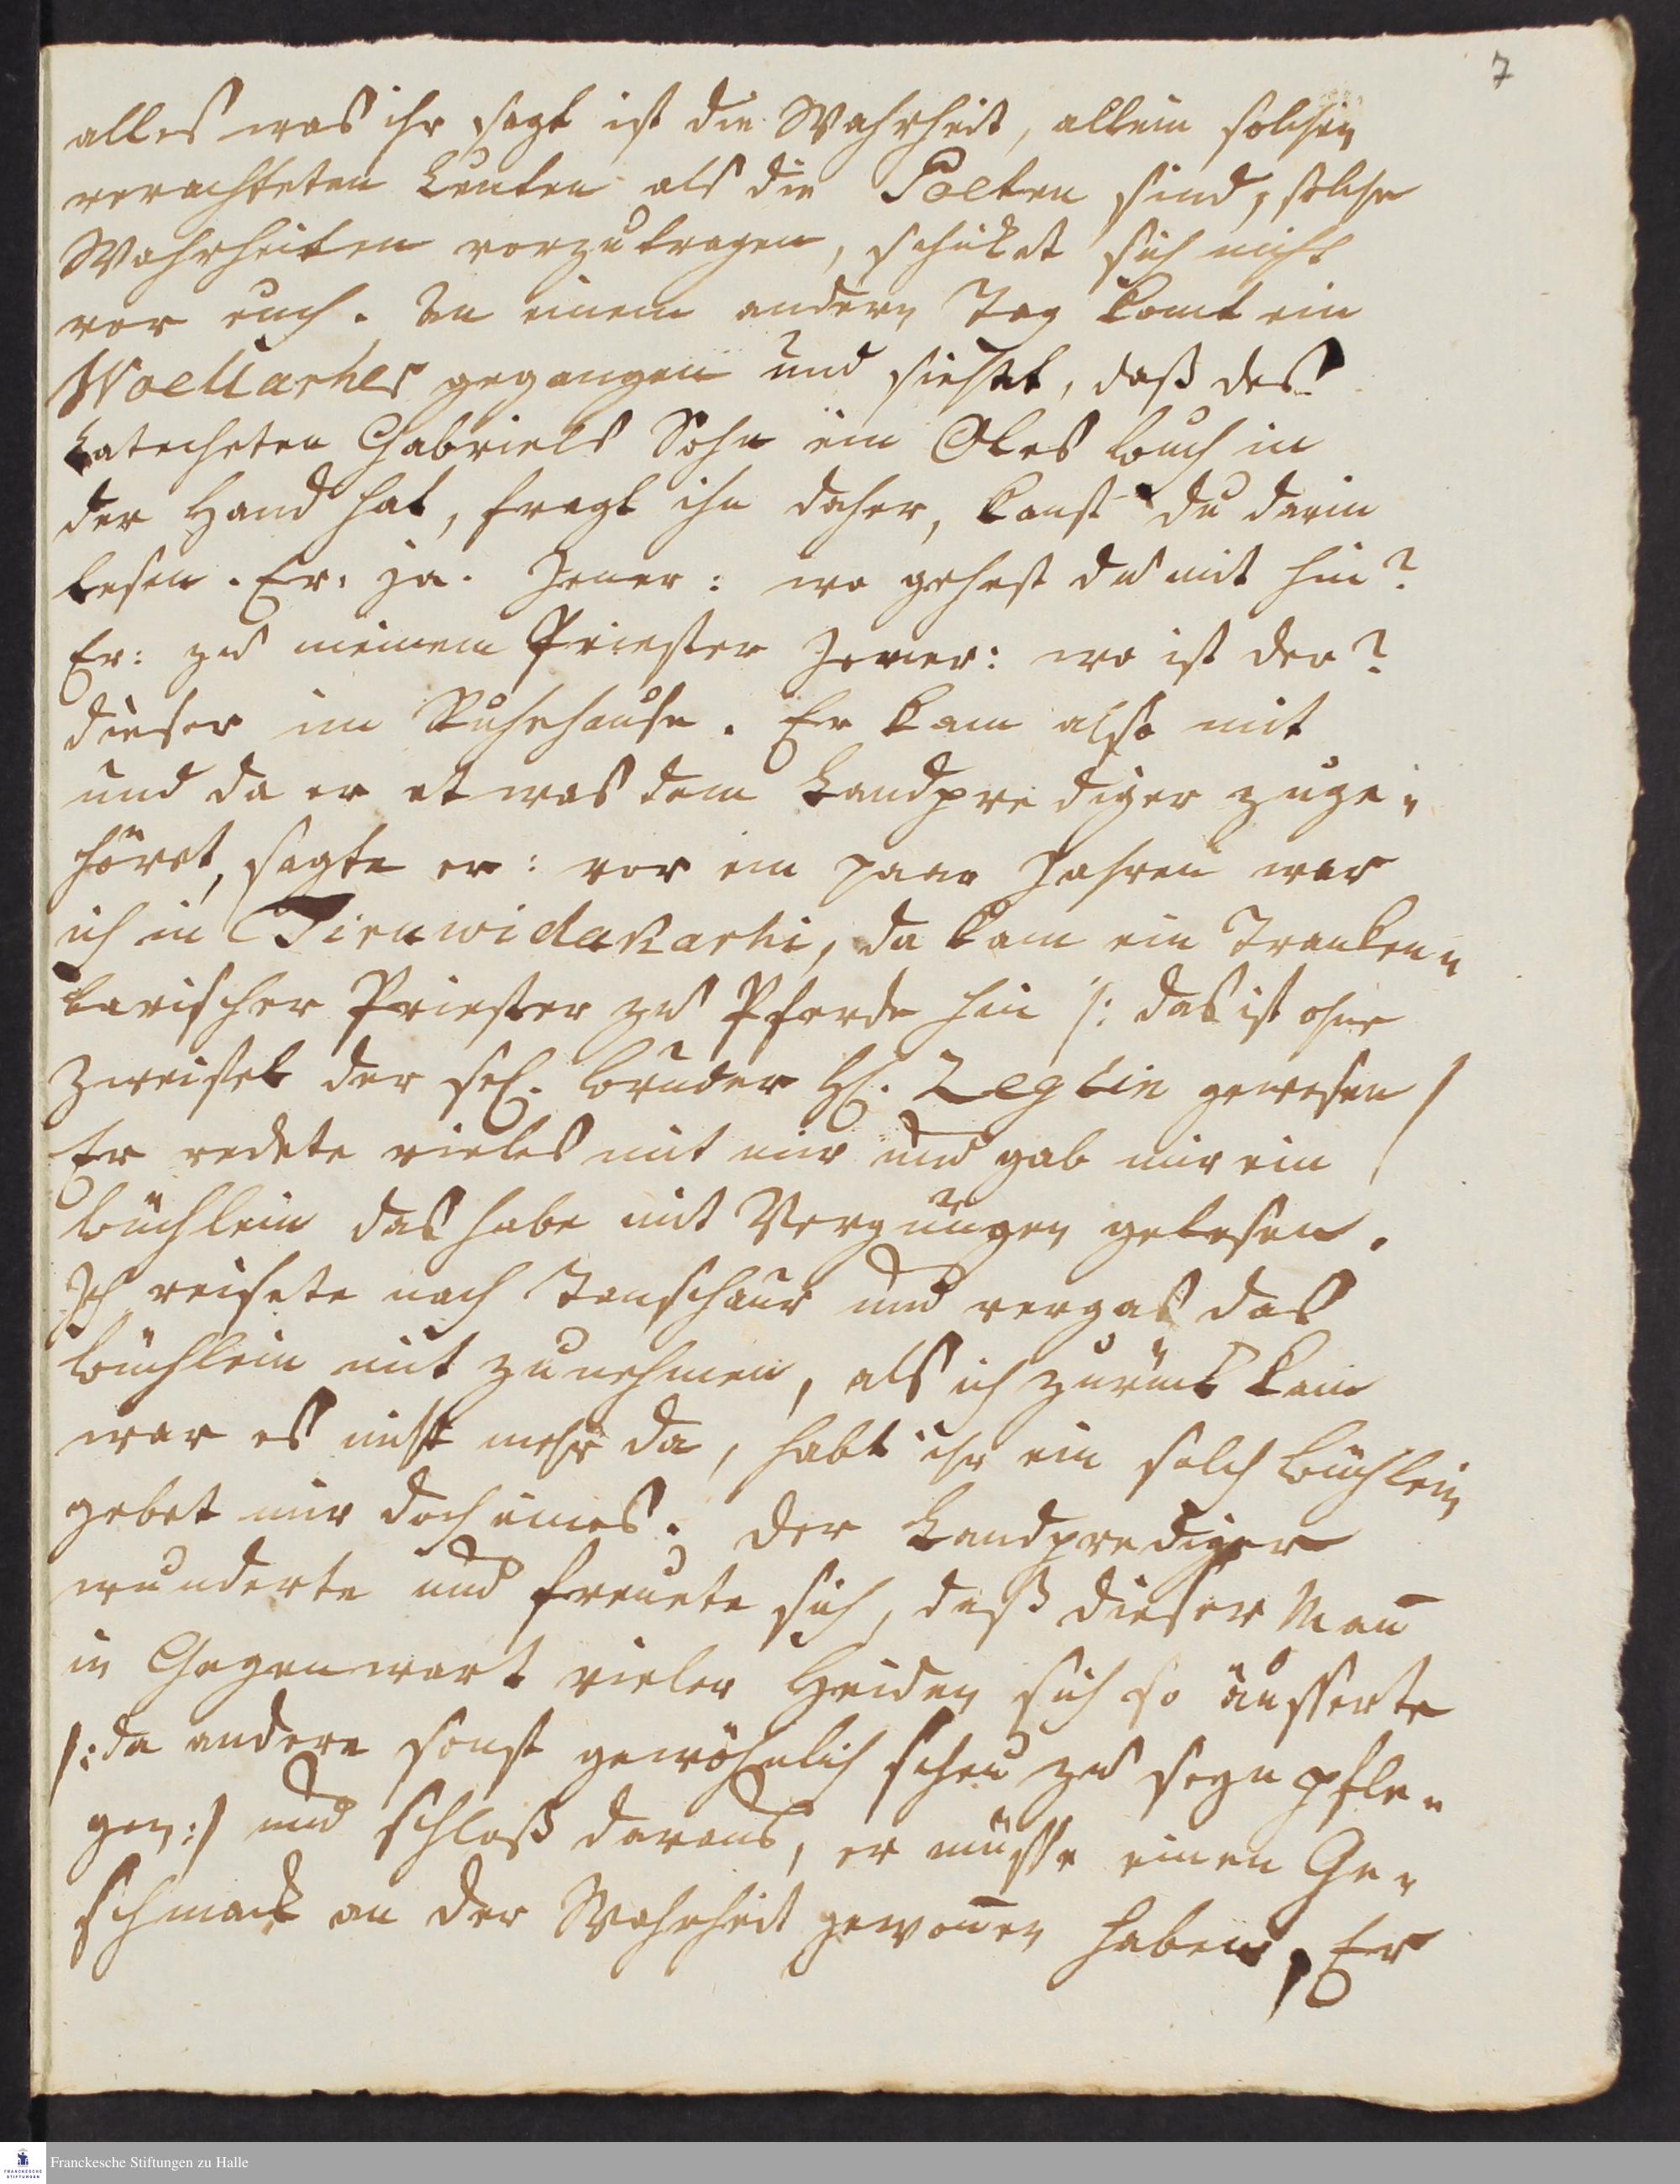 7
alles was ihr sagt ist die Wahrheit, allein solchen
verachteten Leuten als die Poelten sind, solche
Wahrheiten vorzutragen, schicket sich nicht
vor euch. An einem andern Tag komt ein
gegangen und siehet, daß des
Katecheten Gabriels Sohn ein Oles buch in
der Hand hat, fragt ihn daher, kanst du darin
lesen. Er: ja. Jener: wo gehest du mit hin?
Er: zu meinem Priester Jener: wo ist der?
dieser im Ruhehause. Er kam also mit
und da er etwas dem Landprediger zuge¬
höret, sagte er: vor ein paar Jahren war
ich in Tiruwidakarhi, da kam ein Tranken¬
barischer Priester zu Pferde hin /: das ist ohne
Zweifel der sel. Bruder H. Zeglin gewesen /
Er redete vieles mit mir und gab mir ein
büchlein das habe mit Vergnügen gelesen.
Ich reisete nach Tanschaur und vergas das
büchlein mit zunehmen, als ich zurück kam
war es nicht mehr da, habt ihr ein solch büchlein
gebet mir doch eines. Der Landprediger
wunderte und freuete sich, daß dieser Man̄
in Gegenwart vieler Heiden sich so äusserte
/: da andere sonst gewöhnlich scheu zu seyn pfle¬
gen :/ und schloß daraus, er müsse einen Ge¬
schmack an der Wahrheit gewon̄en haben, Er
Franckesche Stiftungen zu Halle